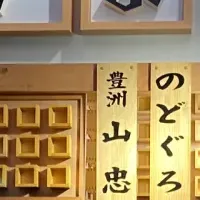 のどぐろ
豊洲
山忠